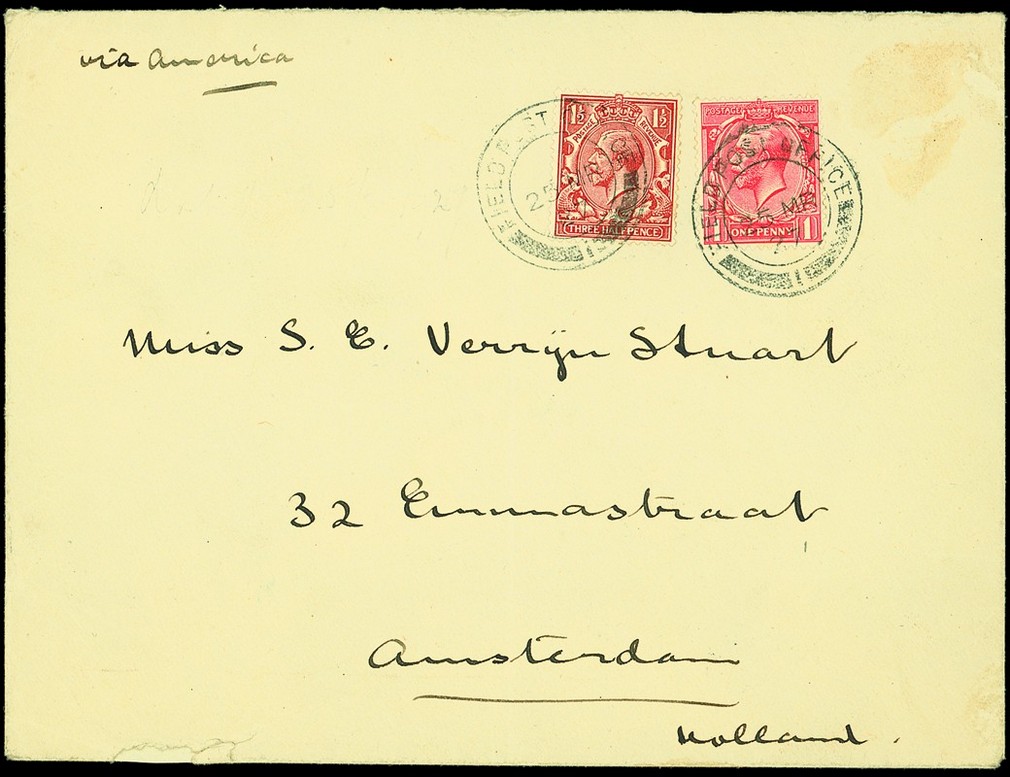 via America
1½ 1½
POSTAGE REVENUE
THREE HALFPENCE
POSTAGE REVENUE
ONE PENNY 1
FIELD POST
25
FIELD POST OFFICE
MR
Miss S. E. Verrijn Stuart
32 Emmastraat
Amsterdam
Holland.